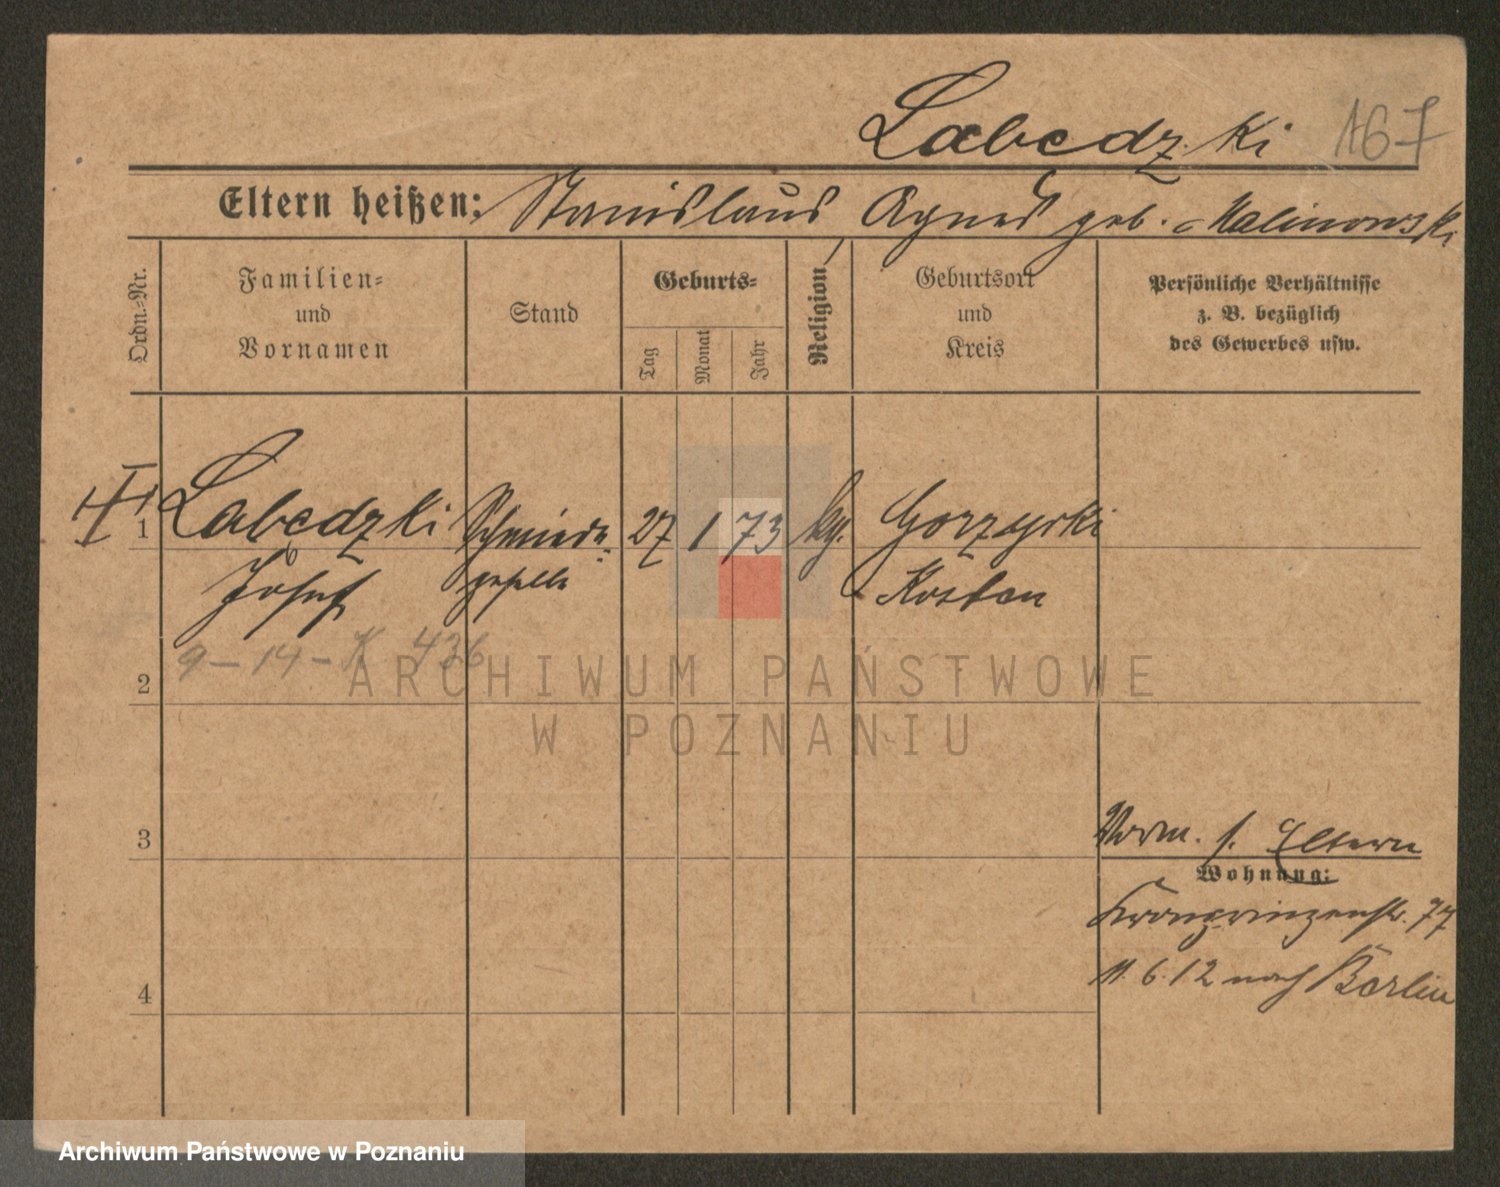 Labedzki 167
Eltern heißen: Stanislaus Agnes geb. Kalinowski
Ordn.-Nr.
Familien-
und
Vornamen
Stand
Geburts-
Tag
Monat
Jahr
Religion
Geburtsort
und
Kreis
Persönliche Verhältnisse
z. B. bezüglich
des Gewerbes usw.
1 Labedzki Schmiede- 27 1 73 Gorzycki
Josef geselle Kosten
9-14-K 436
2
ARCHIWUM PAŃSTWOWE
W POZNANIU
3
Vorm. s. Eltern
Wohnung:
Kronprinzenstr. 77
4
11.6.12 nach Berlin
Archiwum Państwowe w Poznaniu